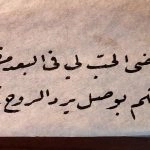 الحب لي فى البعد
بوصل يرد الروح